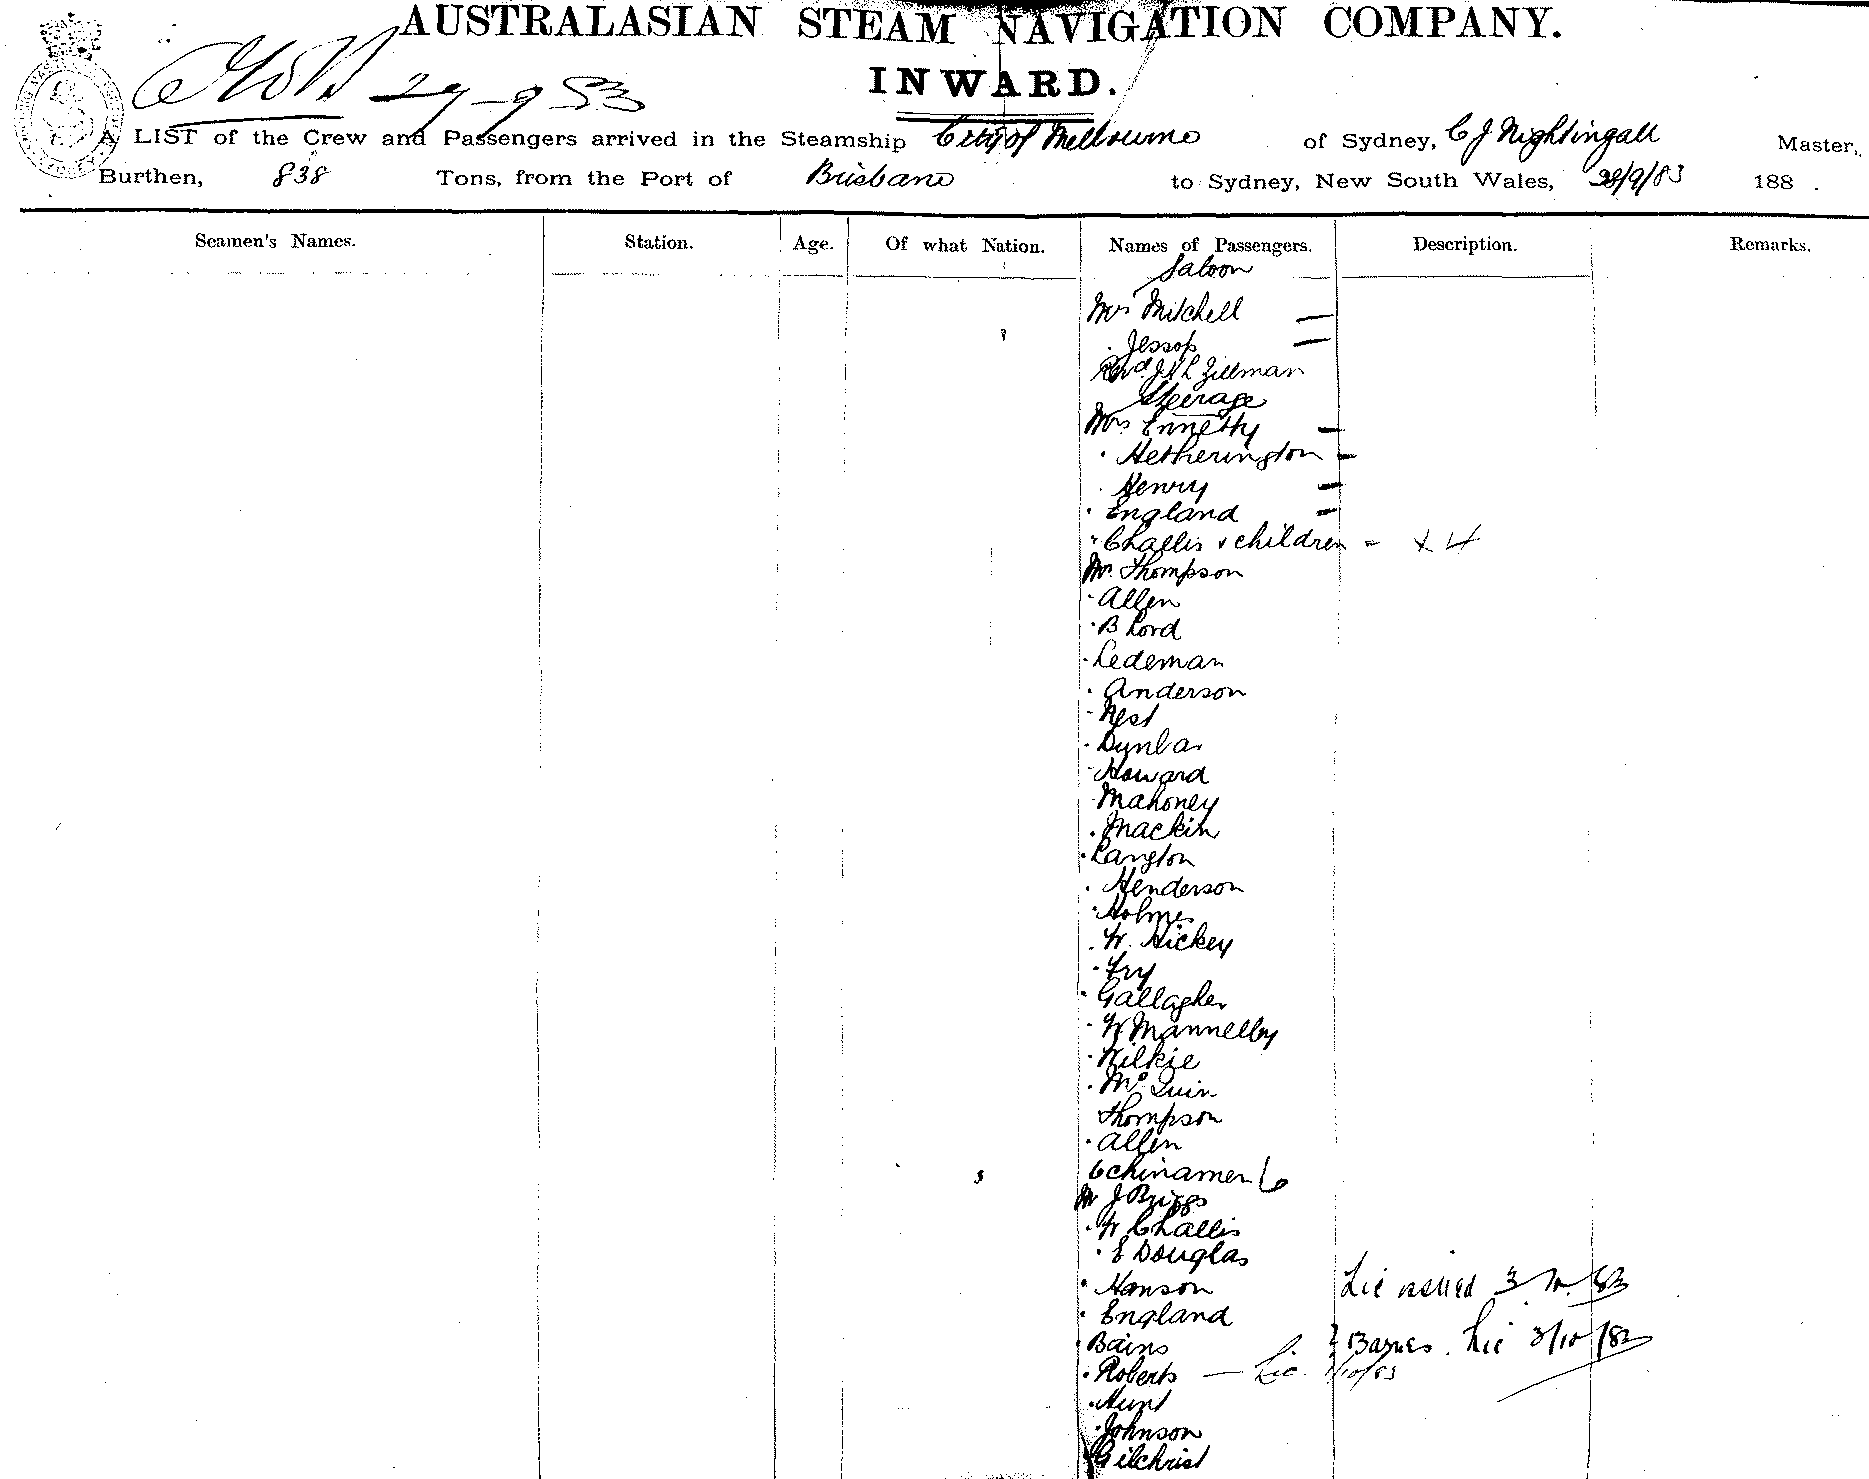 AUSTRALASIAN STEAM NAVIGATION COMPANY.
INWARD.
29-9 83
A LIST of the Crew and Passengers arrived in the Steamship City of Melbourne of Sydney, C J Nightingall Master,
Burthen, 838 Tons, from the Port of Brisbane to Sydney, New South Wales, 28/9/83 188 .
Seamen's Names. Station. Age. Of what Nation. Names of Passengers. Description. Remarks.
Saloon
Mrs Mitchell —
. Jessop —
Revd. J H L Zillman
Steerage
Mrs Ennetty —
. Hetherington —
. Henry —
. England —
" Challis & children - x 4
Mr. Thompson
. Allen
. B Lord
. Ledeman
. Anderson
West
. Dunbar
Howard
Mahoney
. Mackin
. Langton
. Henderson
. Holmes
. W. Hickey
. Fry
. Gallagher
. W Mannelly
. Wilkie
. Mc Quin
Thompson
. Allen
6 Chinamen 6
Mr J Briggs
. W Challis
. E Douglas
. Hanson Lic issued 3/10/83
. England
. Bains ? Barnes. Lic 3/10/83
. Roberts — Lic. /10/83
. Hunt
. Johnson
Gilchrist